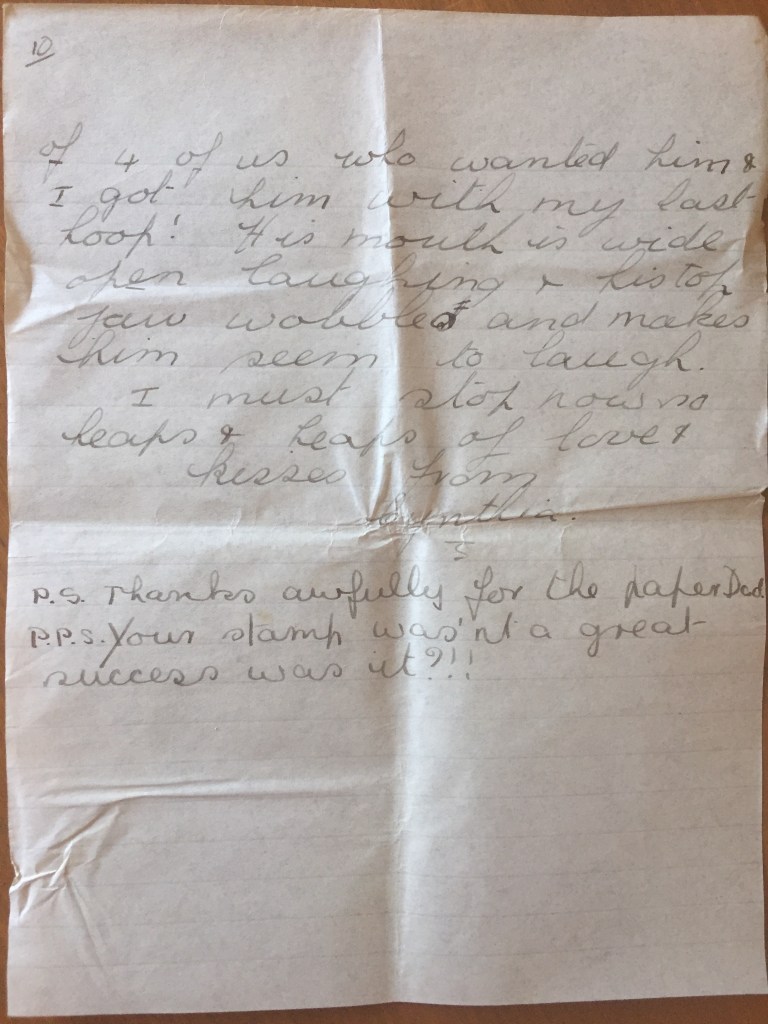 10
of 4 of us who wanted him &
I got him with my last
hoop! His mouth is wide
open laughing & his top
jaw wobbles and makes
him seem to laugh.
I must stop now so
heaps & heaps of love &
kisses from
Cynthia.
P.S. Thanks awfully for the paper Dad.
P.P.S. Your stamp was'nt a great
success was it?!!!